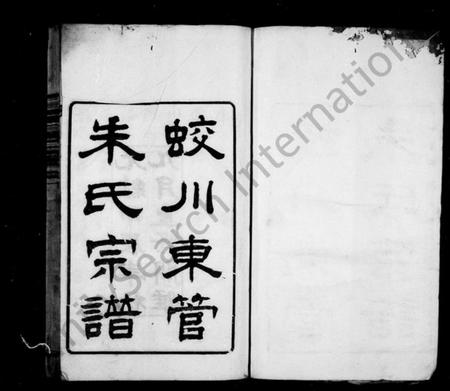 蛟川東管
朱氏宗譜
hilySearch International